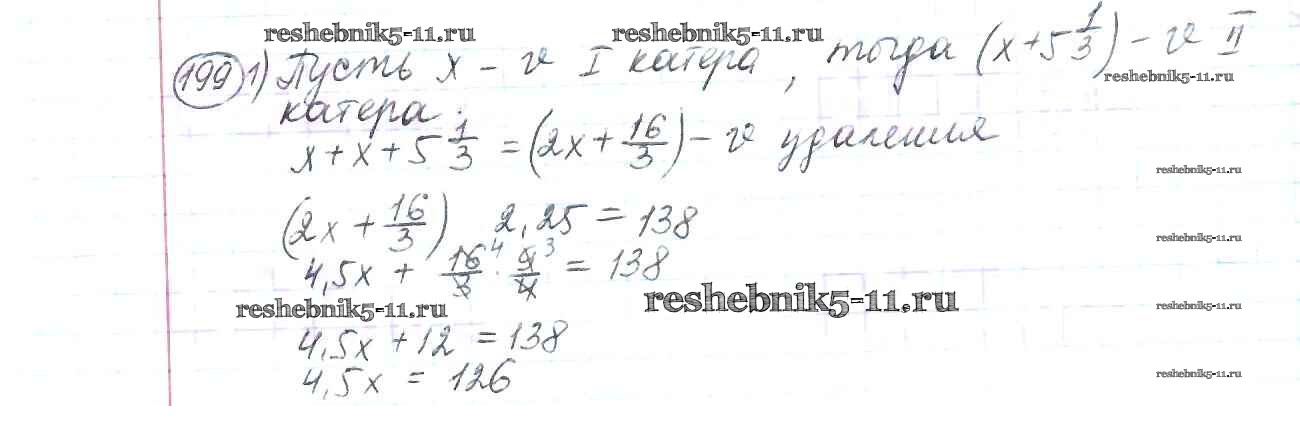 reshebnik5-11.ru reshebnik5-11.ru
199 1) Пусть x - v I катера, тогда (x+5 1/3) - v II
reshebnik5-11.ru
катера.
x+x+5 1/3 = (2x+16/3) - v удаления
reshebnik5-11.ru
(2x+16/3) 2,25 = 138
reshebnik5-11.ru
4,5x + 16/3 4 · 9/4 3 = 138
reshebnik5-11.ru reshebnik5-11.ru reshebnik5-11.ru
4,5x +12 = 138
4,5x = 126
reshebnik5-11.ru